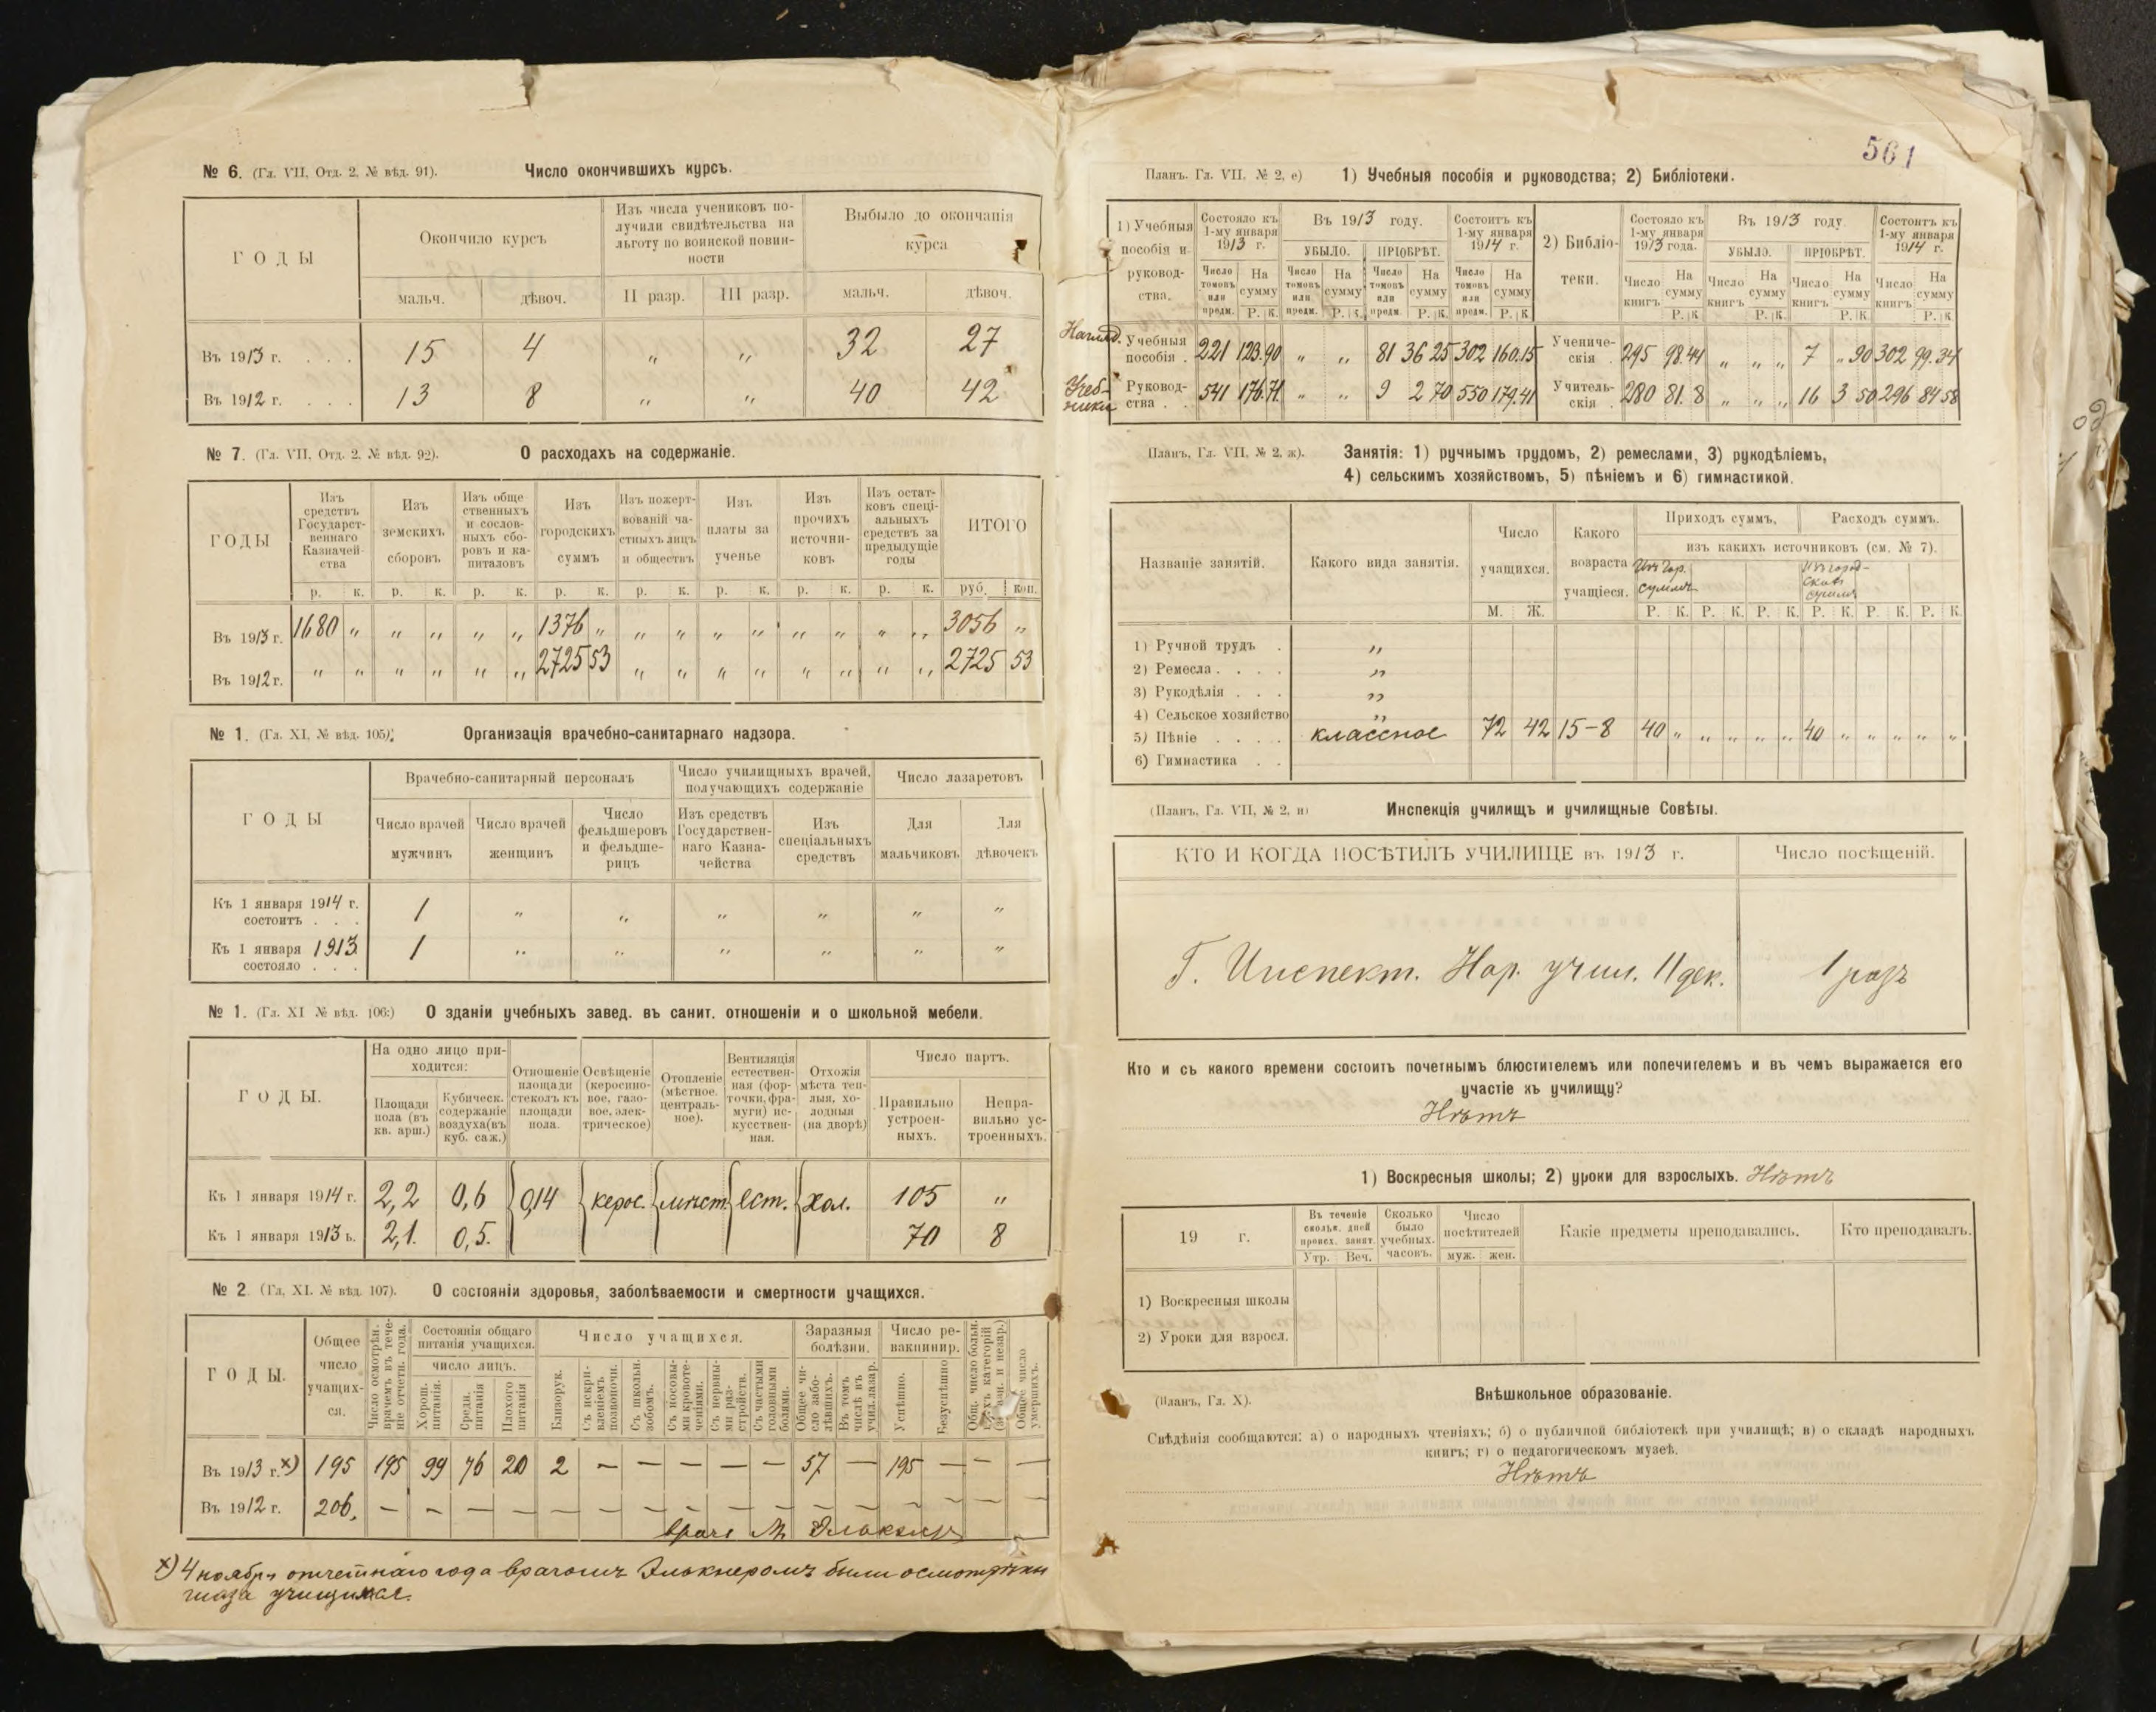 № 6. (Гл. VII, Отд. 2, № вѣд. 91). Число окончившихъ курсъ.
ГОДЫ
Окончило курсъ
Изъ числа учениковъ по-
лучили свидѣтельства на
льготу по воинской повин-
ности
Выбыло до окончанія
курса
мальч. дѣвоч. II разр. III разр. мальч. дѣвоч.
Въ 1913 г. . . . 15 4 „ „ 32 27
Въ 1912 г. . . . 13 8 „ „ 40 42
№ 7. (Гл. VII, Отд. 2, № вѣд. 92). О расходахъ на содержаніе.
ГОДЫ
Изъ
средствъ
Государст-
веннаго
Казначей-
ства
Изъ
земскихъ
сборовъ
Изъ обще
ственныхъ
и сослов-
ныхъ сбо-
ровъ и ка-
питаловъ
Изъ
городскихъ
суммъ
Изъ пожерт-
вованій ча-
стныхъ лицъ
и обществъ
Изъ
платы за
ученье
Изъ
прочихъ
источни-
ковъ
Изъ остат-
ковъ спеці-
альныхъ
средствъ за
предыдущіе
годы
ИТОГО
р. к. р. к. р. к. р. к. р. к. р. к. р. к. р. к. руб. коп.
Въ 1913 г. 1680 „ „ „ „ „ 1376 „ „ „ „ „ „ „ „ „ 3056 „
Въ 1912 г. „ „ „ „ „ „ 2725 53 „ „ „ „ „ „ „ „ 2725 53
№ 1. (Гл. XI, № вѣд. 105). Организація врачебно-санитарнаго надзора.
ГОДЫ
Врачебно-санитарный персоналъ
Число училищныхъ врачей,
получающихъ содержаніе
Число лазаретовъ
Число врачей
мужчинъ
Число врачей
женщинъ
Число
фельдшеровъ
и фельдше-
рицъ
Изъ средствъ
Государствен-
наго Казна-
чейства
Изъ
спеціальныхъ
средствъ
Для
мальчиковъ
Для
дѣвочекъ
Къ 1 января 1914 г.
состоитъ . . . 1 „ „ „ „ „ „
Къ 1 января 1913
состояло . . . 1 „ „ „ „ „ „
№ 1. (Гл. XI № вѣд. 106:) О зданіи учебныхъ завед. въ санит. отношеніи и о школьной мебели.
ГОДЫ.
На одно лицо при-
ходится:
Площади
пола (въ
кв. арш.)
Кубическ.
содержаніе
воздуха(въ
куб. саж.)
Отношеніе
площади
стеколъ къ
площади
пола.
Освѣщеніе
(керосино-
вое, газо-
вое, элек-
трическое)
Отопленіе
(мѣстное,
централь-
ное).
Вентиляція
естествен-
ная (фор-
точки, фра-
муги) ис-
кусствен-
ная.
Отхожія
мѣста теп-
лыя, хо-
лодныя
(на дворѣ)
Число партъ.
Правильно
устроен-
ныхъ.
Непра-
вильно ус-
троенныхъ.
Къ 1 января 1914 г. 2,2 0,6 0,14 керос. мѣст. ест. хол. 105 „
Къ 1 января 1913 ъ. 2,1. 0,5. 70 8
№ 2. (Гл. XI. № вѣд. 107). О состояніи здоровья, заболѣваемости и смертности учащихся.
ГОДЫ.
Общее
число
учащих-
ся.
Число осмотрѣн.
врачемъ въ тече-
ніе отчетн. года.
Состоянія общаго
питанія учащихся.
число лицъ.
Хорош.
питанія.
Средн.
питанія
Плохого
питанія
Число учащихся.
Близорук.
Съ искри-
вленіемъ
позвоночн.
Съ школьн.
зобомъ.
Съ носовы-
ми кровоте-
ченіями.
Съ нервны-
ми раз-
стройств.
Съ частыми
головными
болями.
Заразныя
болѣзни.
Общее чи-
сло забо-
лѣвшихъ.
Въ томъ
числѣ въ
учил. лазар.
Число ре-
вакцинир.
Успѣшно.
Безуспѣшно
Общ. число больн.
категорій
Общее число
умершихъ.
Въ 1913 г. х) 195 195 99 76 20 2 — — — — — 57 — 195 — — —
Въ 1912 г. 206. — — — — — — — — — — — — — — — —
врачъ М Элькнеръ
х) 4 ноября отчетнаго года врачомъ Элькнеромъ были осмотрѣны
глаза учащихся.
561
Планъ. Гл. VII. № 2, е) 1) Учебныя пособія и руководства; 2) Библіотеки.
1) Учебныя
пособія и
руковод-
ства.
Состояло къ
1-му января
1913 г.
Въ 1913 году.
УБЫЛО. ПРІОБРѢТ.
Состоитъ къ
1-му января
1914 г.
2) Библіо-
теки.
Состояло къ
1-му января
1913 года.
Въ 1913 году
УБЫЛО. ПРІОБРѢТ.
Состоитъ къ
1-му января
1914 г.
Число
томовъ
или
предм.
На
сумму
Р. К.
Число
томовъ
или
предм.
На
сумму
Р. К.
Число
томовъ
или
предм.
На
сумму
Р. К.
Число
томовъ
или
предм.
На
сумму
Р. К.
Число
книгъ
На
сумму
Р. К
Число
книгъ
На
сумму
Р. К.
Число
книгъ
На
сумму
Р. К
Число
книгъ
На
сумму
Р. К
Нагляд. Учебныя
пособія . 221 123.90 „ „ 81 36 25 302 160.15 Учениче-
скія . 295 98.44 „ „ „ 7 „ 90 302 99.34
Учеб-
ники Руковод-
ства . . 541 176.71 „ „ 9 2 70 550 179.41 Учитель-
скія . 280 81.8 „ „ „ 16 3 50 296 84 58
Планъ, Гл. VII, № 2, ж). Занятія: 1) ручнымъ трудомъ, 2) ремеслами, 3) рукодѣліемъ,
4) сельскимъ хозяйствомъ, 5) пѣніемъ и 6) гимнастикой.
Названіе занятій.
Какого вида занятія.
Число
учащихся.
М. Ж.
Какого
возраста
учащіеся.
Приходъ суммъ, Расходъ суммъ.
изъ какихъ источниковъ (см. № 7).
Изъ гор.
суммъ
Изъ город-
скихъ
суммъ
Р. К. Р. К. Р. К. Р. К. Р. К. Р. К
1) Ручной трудъ . „
2) Ремесла . . . . „
3) Рукодѣлія . . . „
4) Сельское хозяйство „
5) Пѣніе . . . . классное 72 42 15-8 40 „ „ „ „ „ 40 „ „ „ „ „
6) Гимнастика . .
(Планъ, Гл. VII, № 2, и) Инспекція училищъ и училищные Совѣты.
КТО И КОГДА ПОСѢТИЛЪ УЧИЛИЩЕ въ 1913 г. Число посѣщеній.
Г. Инспект. Нар. учил. 11 дек. 1 разъ
Кто и съ какого времени состоитъ почетнымъ блюстителемъ или попечителемъ и въ чемъ выражается его
участіе къ училищу?
Нѣтъ
1) Воскресныя школы; 2) уроки для взрослыхъ. Нѣтъ
19 г.
Въ теченіе
скольк. дней
происх. занят.
Утр. Веч.
Сколько
было
учебныхъ.
часовъ.
Число
посѣтителей
муж. жен.
Какіе предметы преподавались.
Кто преподавалъ.
1) Воскресныя школы
2) Уроки для взросл.
(Планъ, Гл. X). Внѣшкольное образованіе.
Свѣдѣнія сообщаются: а) о народныхъ чтеніяхъ; б) о публичной библіотекѣ при училищѣ; в) о складѣ народныхъ
книгъ; г) о педагогическомъ музеѣ.
Нѣтъ